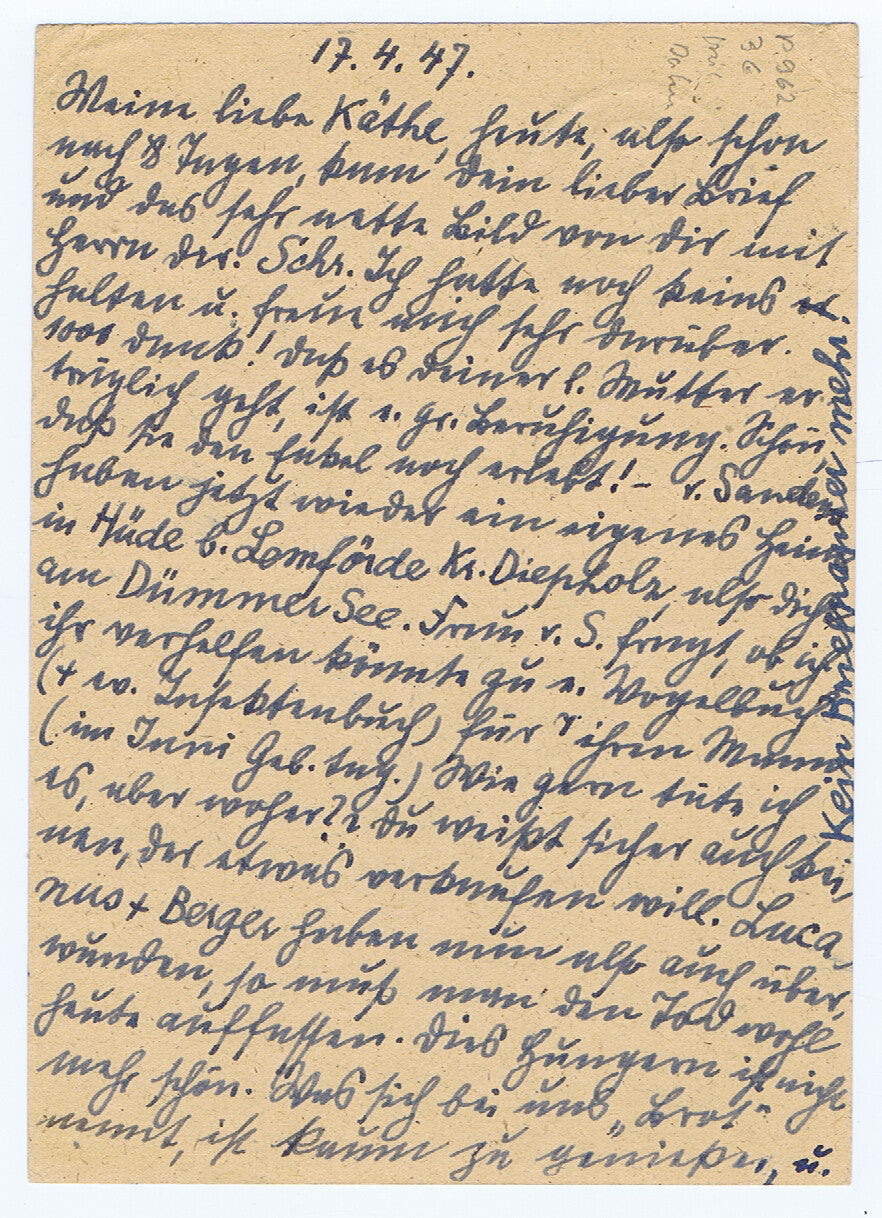 17.4.47.
Meine liebe Käthe, heute, also schon
nach 8 Tagen, kam dein lieber Brief
und das sehr nette Bild von dir mit
Herrn Dr. Schr. Ich hatte noch keins er-
halten u. freue mich sehr darüber.
1000 Dank! Daß es deiner l. Mutter er-
träglich geht, ist e. gr. Beruhigung. Schön
daß sie den Enkel noch erlebt! – v. Sanders
haben jetzt wieder ein eigenes Heim
in Hüde b. Lemförde Kr. Diepholz, also dicht
am Dümmer See. Frau v. S. fragt, ob ich
ihr verhelfen könnte zu e. Vogelbuch
(+ ev. Insektenbuch) für ihren Mann
(im Juni Geb.tag.) Wie gern täte ich
es, aber woher? du weißt sicher auch kei-
nen, der etwas verkaufen will. Luca-
nus + Berger haben nun also auch über-
wunden, so muß man den Tod wohl
heute auffassen. Dies Hungern ist nicht
mehr schön. Was sich bei uns „Brot"
nennt, ist kaum zu genießen, u.
Kein mehr!
P. 962
36